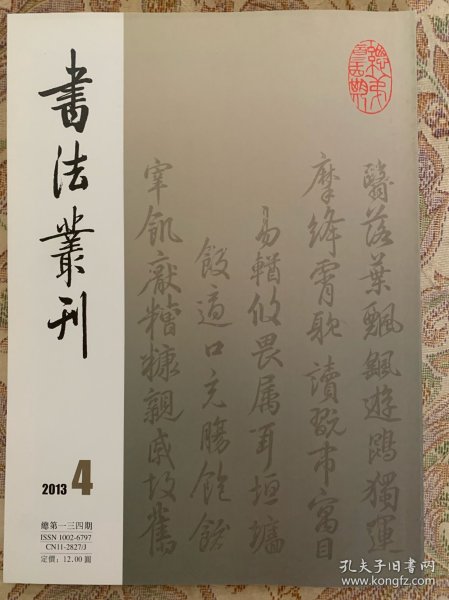 書法叢刊
2013 4
總第一三四期
ISSN 1002-6797
CN11-2827/J
定價：12.00圓
翳落葉飄颻遊鵾獨運
摩絳霄耽讀翫市寓目
易輶攸畏属耳垣墻
飯適口充腸飽飫
宰飢厭糟糠親戚故舊
孔夫子旧书网
kongfz.com